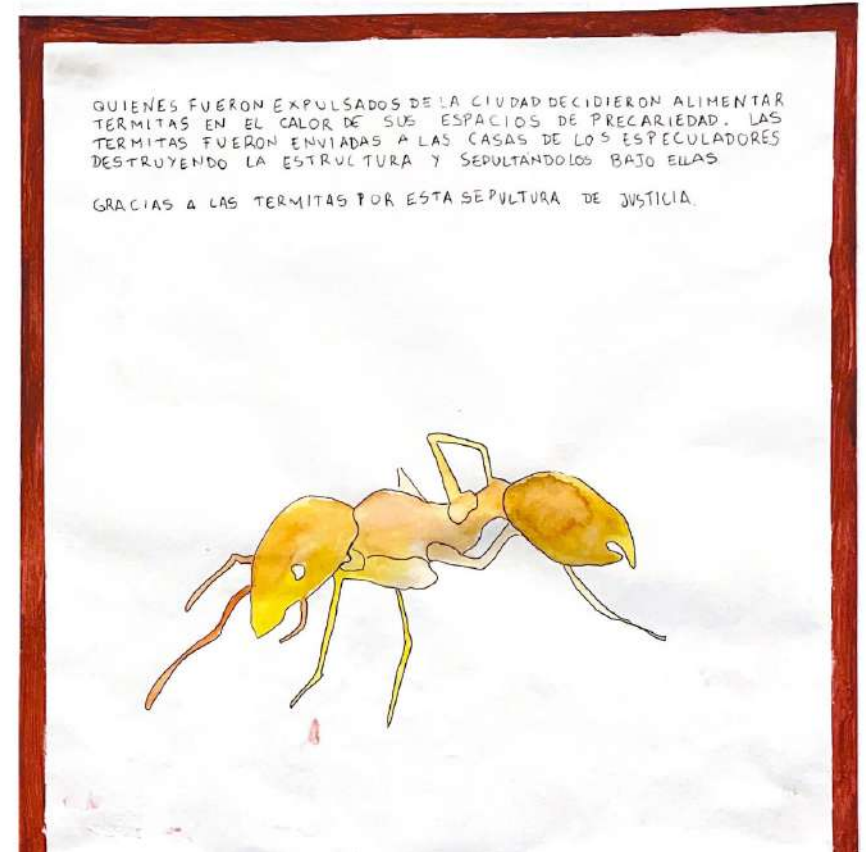 QUIENES FUERON EXPULSADOS DE LA CIUDAD DECIDIERON ALIMENTAR
TERMITAS EN EL CALOR DE SUS ESPACIOS DE PRECARIEDAD. LAS
TERMITAS FUERON ENVIADAS A LAS CASAS DE LOS ESPECULADORES
DESTRUYENDO LA ESTRUCTURA Y SEPULTÁNDOLOS BAJO ELLAS
GRACIAS A LAS TERMITAS POR ESTA SEPULTURA DE JUSTICIA.